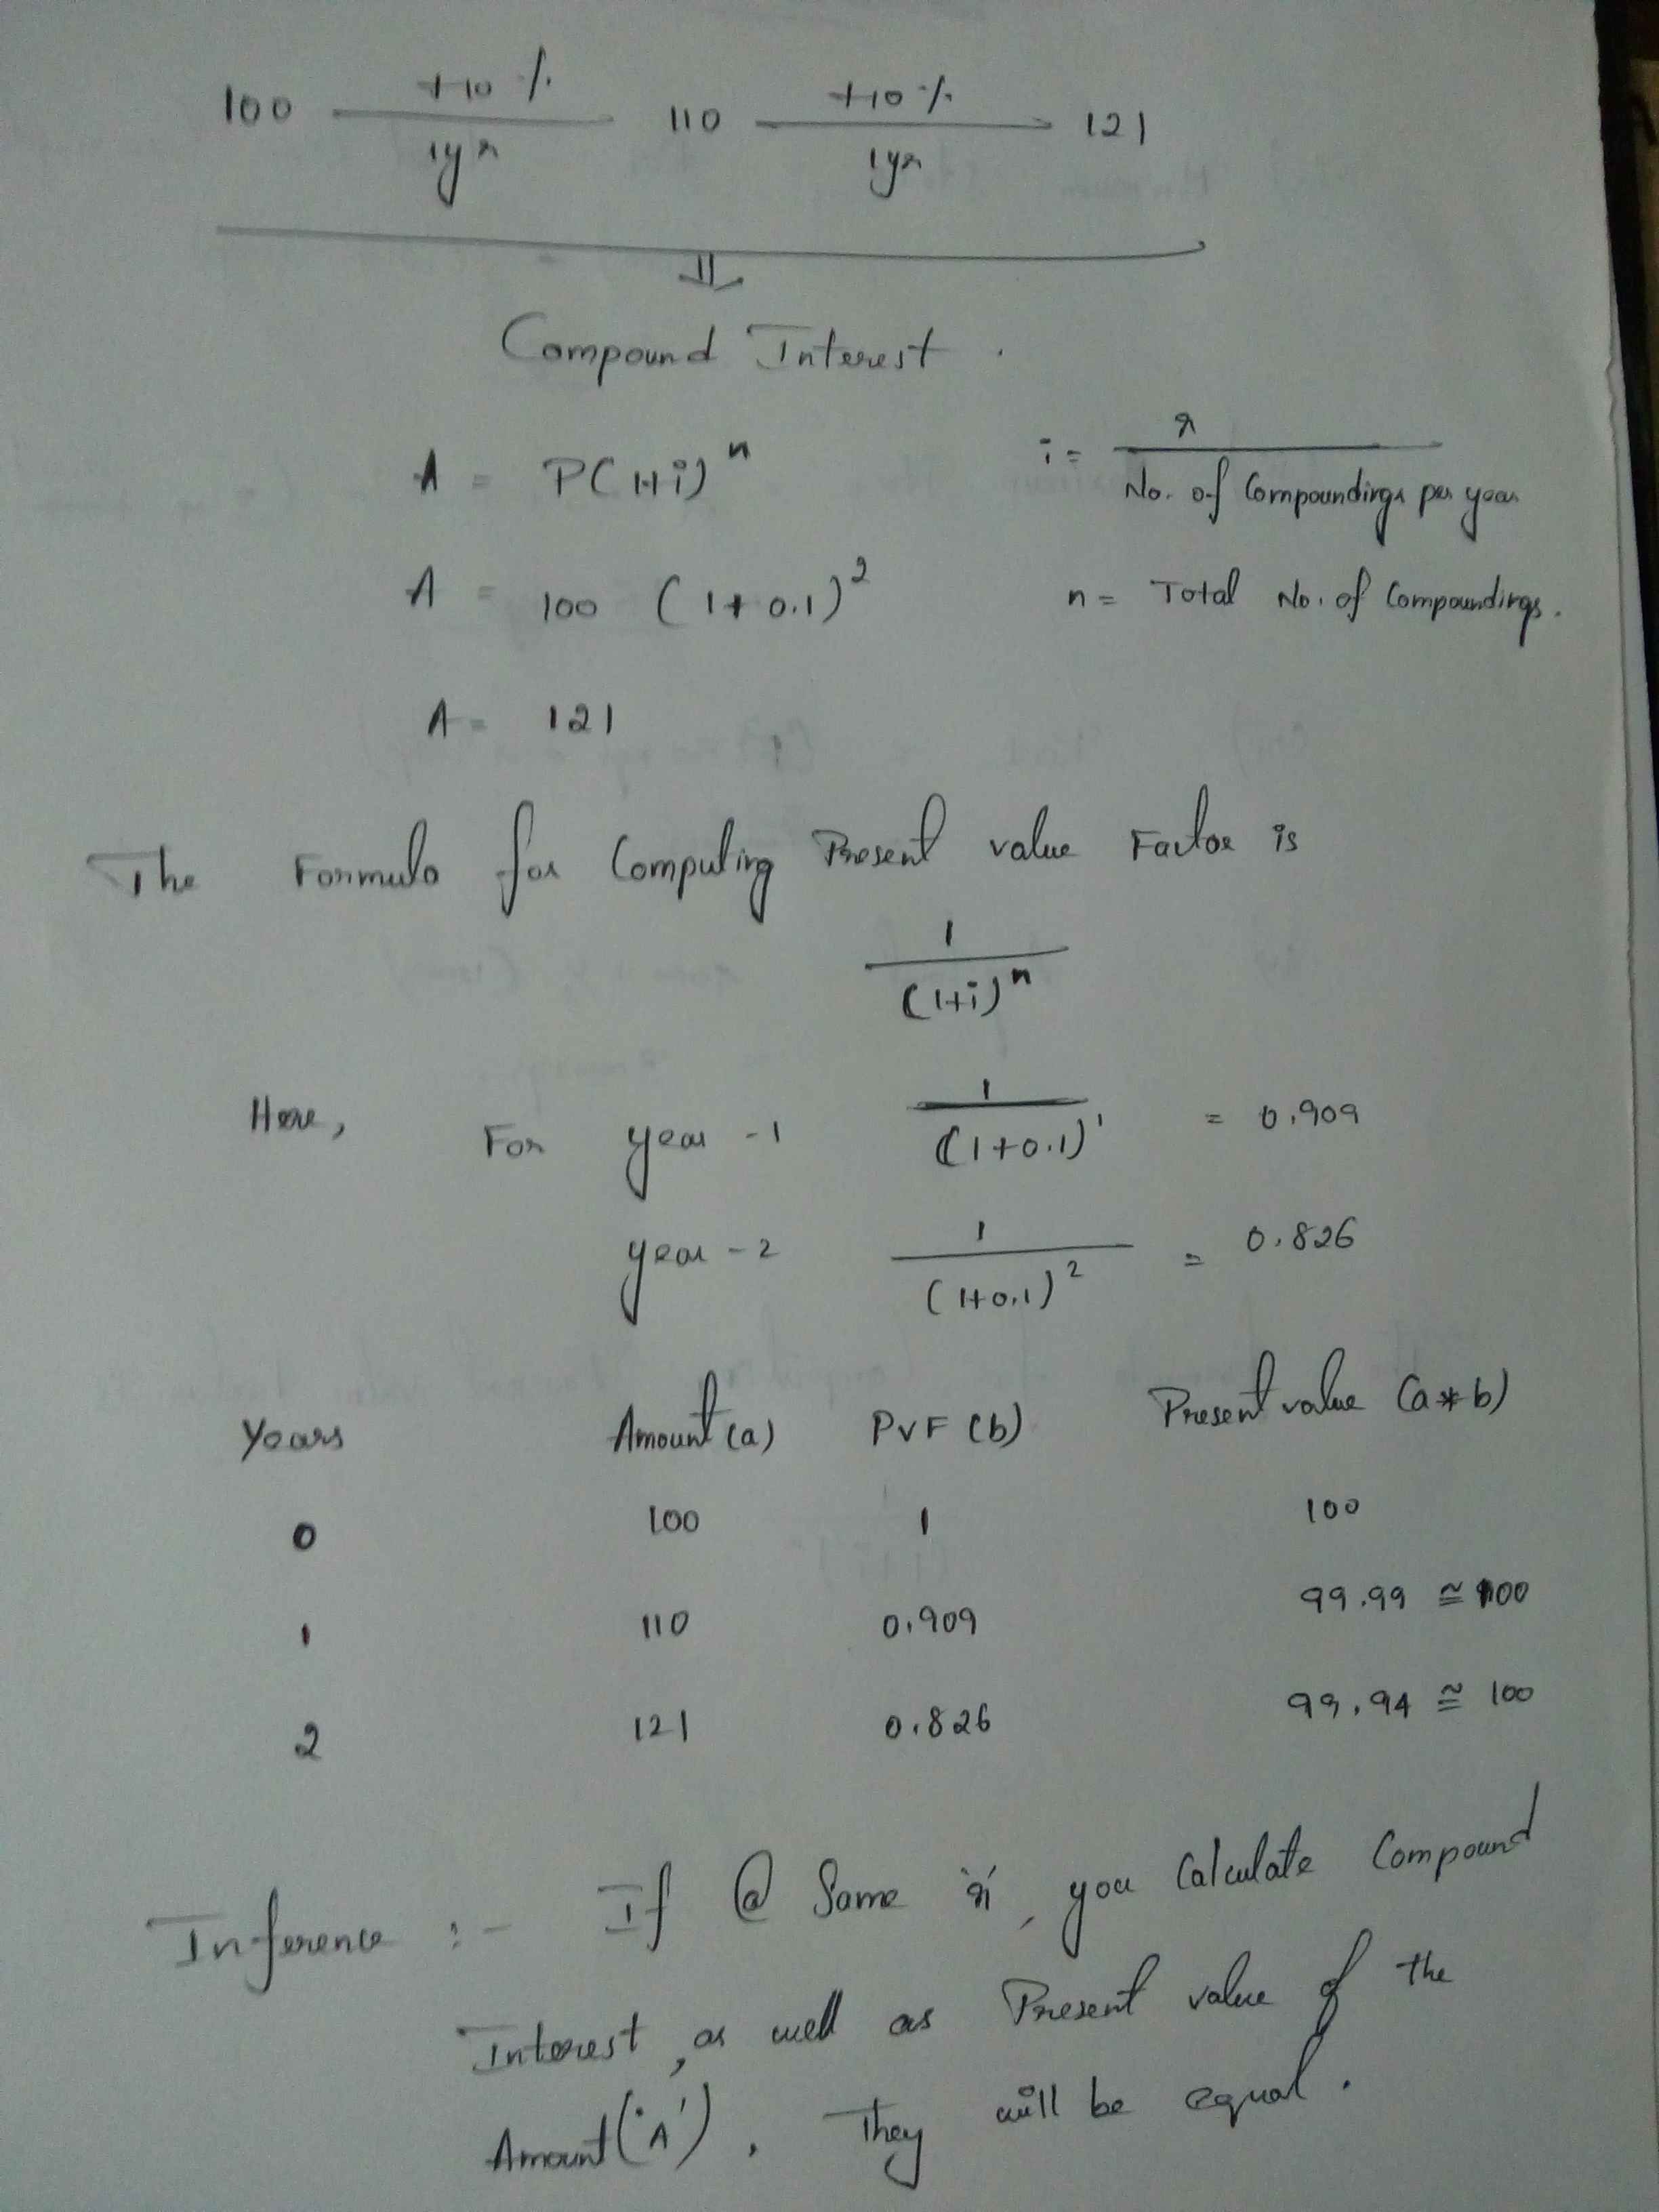 100 +10 % 110 +10 % 121
1yr 1yr
⇓
Compound Interest .
A = P(1+i)^n i = r / No. of Compoundings per year
A = 100 (1+0.1)^2 n = Total No. of Compoundings.
A = 121
The Formula for Computing Present value Factor is
1
(1+i)^n
Here, For year -1 1 / (1+0.1)^1 = 0.909
year - 2 1 / (1+0.1)^2 = 0.826
Years Amount (a) PVF (b) Present value (a*b)
0 100 1 100
1 110 0.909 99.99 ≅ 100
2 121 0.826 99.94 ≅ 100
Inference :- If @ Same 'r', you Calculate Compound
Interest, as well as Present value of the
Amount ('A'). They will be equal.